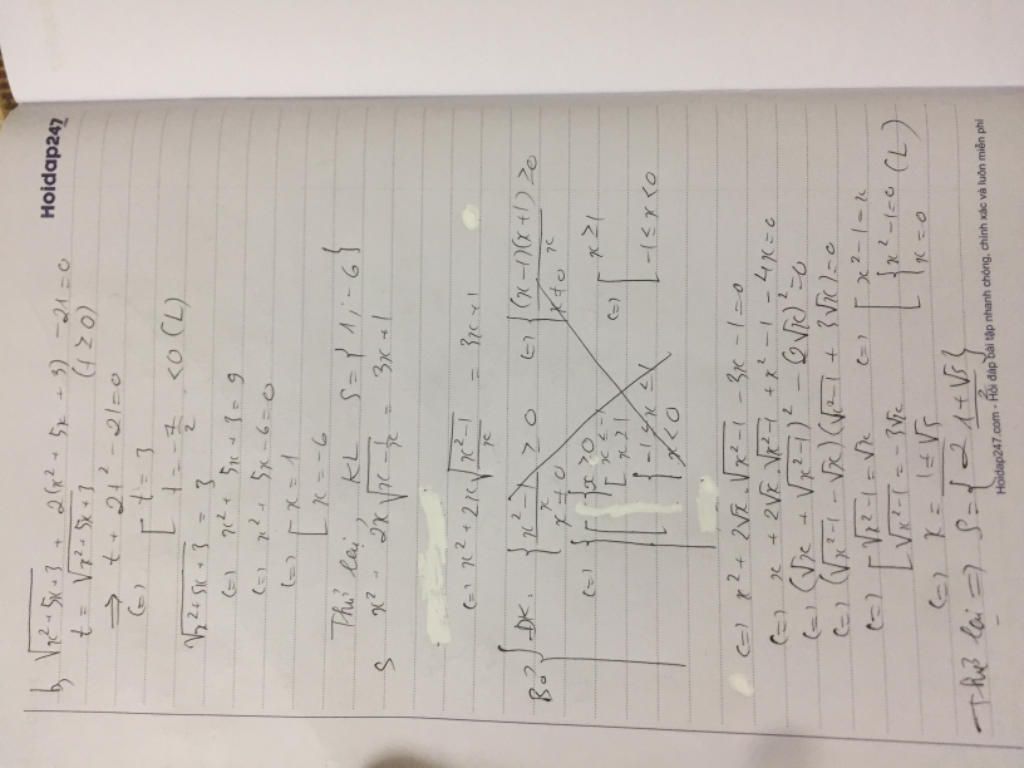 Hoidap247
b, √(x²+5x+3) + 2(x²+5x+3) - 21=0
t = √(x²+5x+3) (t ≥ 0)
⇒ t + 2t² - 21=0
(=) [ t = 3
[ t = -7/2 <0 (L)
√(x²+5x+3) = 3
(=) x² + 5x + 3 = 9
(=) x² + 5x - 6=0
(=) [ x = 1
[ x = -6
Thử lại, KL S={1;-6}
x² + 2x√(x - 1/x) = 3x+1
(=) x² + 2x√((x²-1)/x) = 3x+1
ĐK. { (x²-1)/x ≥ 0 (=) { (x-1)(x+1)/x ≥ 0
{ x ≠ 0 { x ≠ 0
(=) [ { x ≥ 0 (=) [ x ≥ 1
{ [ x ≤ -1
[ x ≥ 1
[ { -1 ≤ x ≤ 1 [ -1 ≤ x < 0
{ x < 0
(=) x² + 2√x.√(x²-1) - 3x - 1=0
(=) x + 2√x.√(x²-1) + x² - 1 - 4x=0
(=) (√x + √(x²-1))² - (2√x)² =0
(=) (√(x²-1) - √x)(√(x²-1) + 3√x)=0
(=) [ √(x²-1) = √x (=) [ x² - 1 = x
[ √(x²-1) = -3√x [ { x² - 1=0 (L)
{ x = 0
(=) x = (1±√5)/2
Thử lại =) S={(1+√5)/2}
Hoidap247.com - Hỏi đáp bài tập nhanh chóng, chính xác và luôn miễn phí